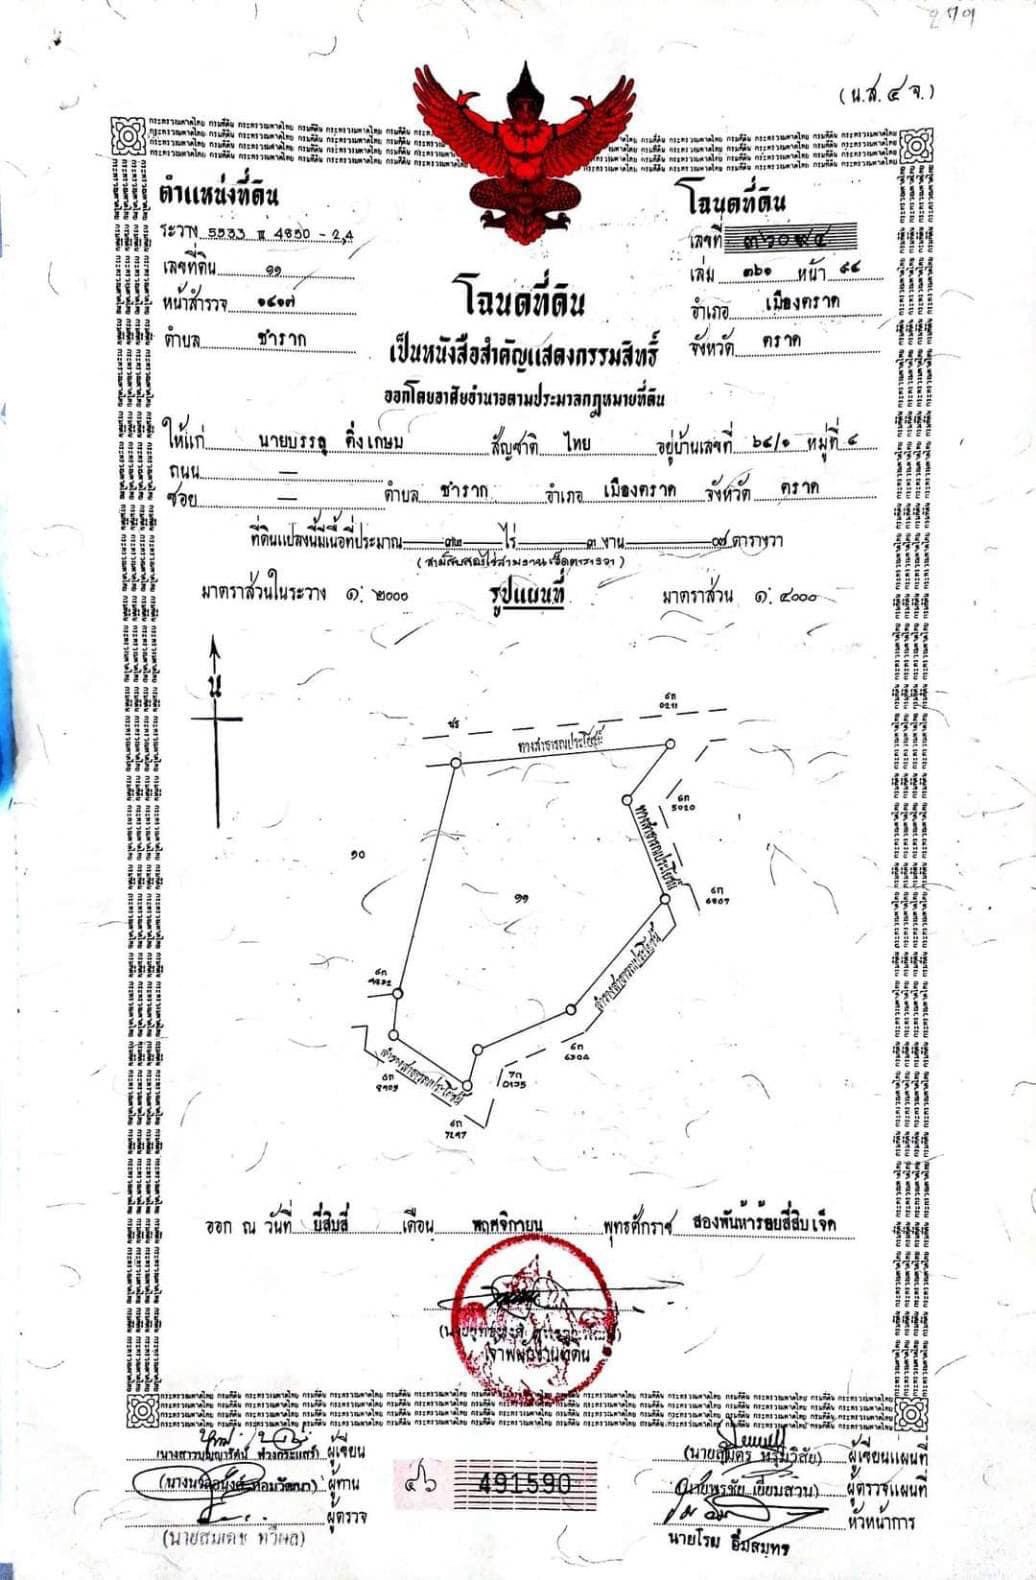 (น.ส. ๔ จ.)
ตำแหน่งที่ดิน
ระวาง 5533 II 4850 - 2,4
เลขที่ดิน ๑๑
หน้าสำรวจ ๑๔๑๗
ตำบล ชำราก
โฉนดที่ดิน
เลขที่ ๓๖๐๙๔
เล่ม ๓๖๑ หน้า ๙๔
อำเภอ เมืองตราด
จังหวัด ตราด
โฉนดที่ดิน
เป็นหนังสือสำคัญแสดงกรรมสิทธิ์
ออกโดยอาศัยอำนาจตามประมวลกฎหมายที่ดิน
ให้แก่ นายบรรลุ กิ่งเกษม สัญชาติ ไทย อยู่บ้านเลขที่ ๖๔/๑ หมู่ที่ ๔
ถนน —
ซอย — ตำบล ชำราก อำเภอ เมืองตราด จังหวัด ตราด
ที่ดินแปลงนี้มีเนื้อที่ประมาณ ๓๒ ไร่ ๓ งาน ๐๗ ตารางวา
(สามสิบสองไร่สามงานเจ็ดตารางวา)
มาตราส่วนในระวาง ๑ : ๒๐๐๐ รูปแผนที่ มาตราส่วน ๑ : ๔๐๐๐
น
ทางสาธารณประโยชน์
5020
ทางสาธารณประโยชน์
๑๐
๑๑
6807
ลำรางสาธารณประโยชน์
6304
ลำรางสาธารณประโยชน์
ออก ณ วันที่ ยี่สิบสี่ เดือน พฤศจิกายน พุทธศักราช สองพันห้าร้อยสี่สิบเจ็ด
เจ้าพนักงานที่ดิน
ผู้เขียน
ผู้ทาน
ผู้ตรวจ
(นายสมเดช ทวีผล)
๔๖ 491590
ผู้เขียนแผนที่
(นายพรชัย เยี่ยมสวน) ผู้ตรวจแผนที่
หัวหน้าการ
นายโรม อิ่มสมุทร